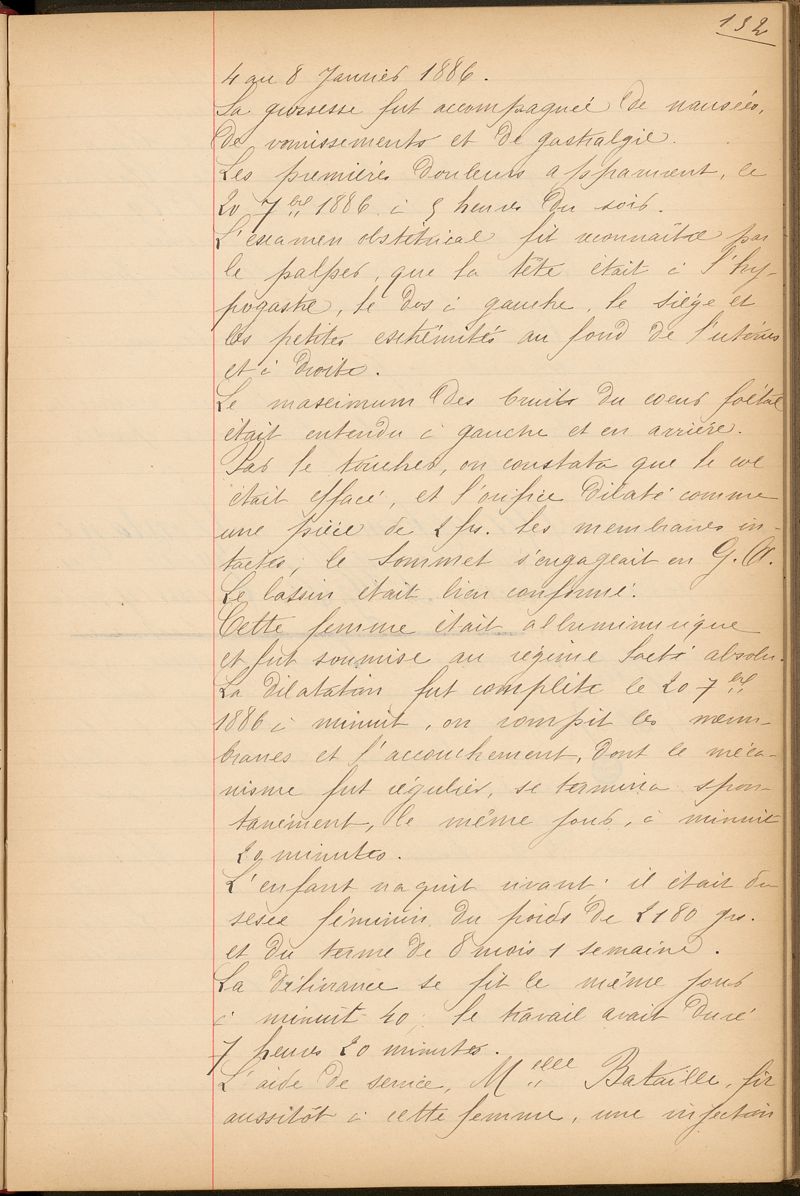 132
4 au 8 Janvier 1886.
La grossesse fut accompagnée de nausées,
de vomissements et de gastralgie.
Les premières douleurs apparurent, le
20 7bre 1886 à 5 heures du soir.
L'examen obstétrical fit reconnaître par
le palper, que la tête était à l'hy-
pogastre, le dos à gauche, le siège et
les petites extrémités au fond de l'utérus
et à droite.
Le maximum des bruits du coeur foetal
était entendu à gauche et en arrière.
Par le toucher, on constata que le col
était effacé, et l'orifice dilaté comme
une pièce de 2 frs. les membranes in-
tactes, le sommet s'engageait en G. A.
Le bassin était bien conformé.
Cette femme était albuminurique
et fut soumise au régime lacté absolu.
La dilatation fut complète le 20 7bre
1886 à minuit, on rompit les mem-
branes et l'accouchement, dont le méca-
nisme fut régulier, se termina spon-
tanément, le même jour, à minuit
20 minutes.
L'enfant naquit vivant: il était du
sexe féminin, du poids de 2180 grs.
et du terme de 8 mois 1 semaine.
La délivrance se fit le même jour
à minuit 40, le travail avait duré
7 heures 20 minutes.
L'aide de service, Melle Bataille, fit
aussitôt à cette femme, une injection